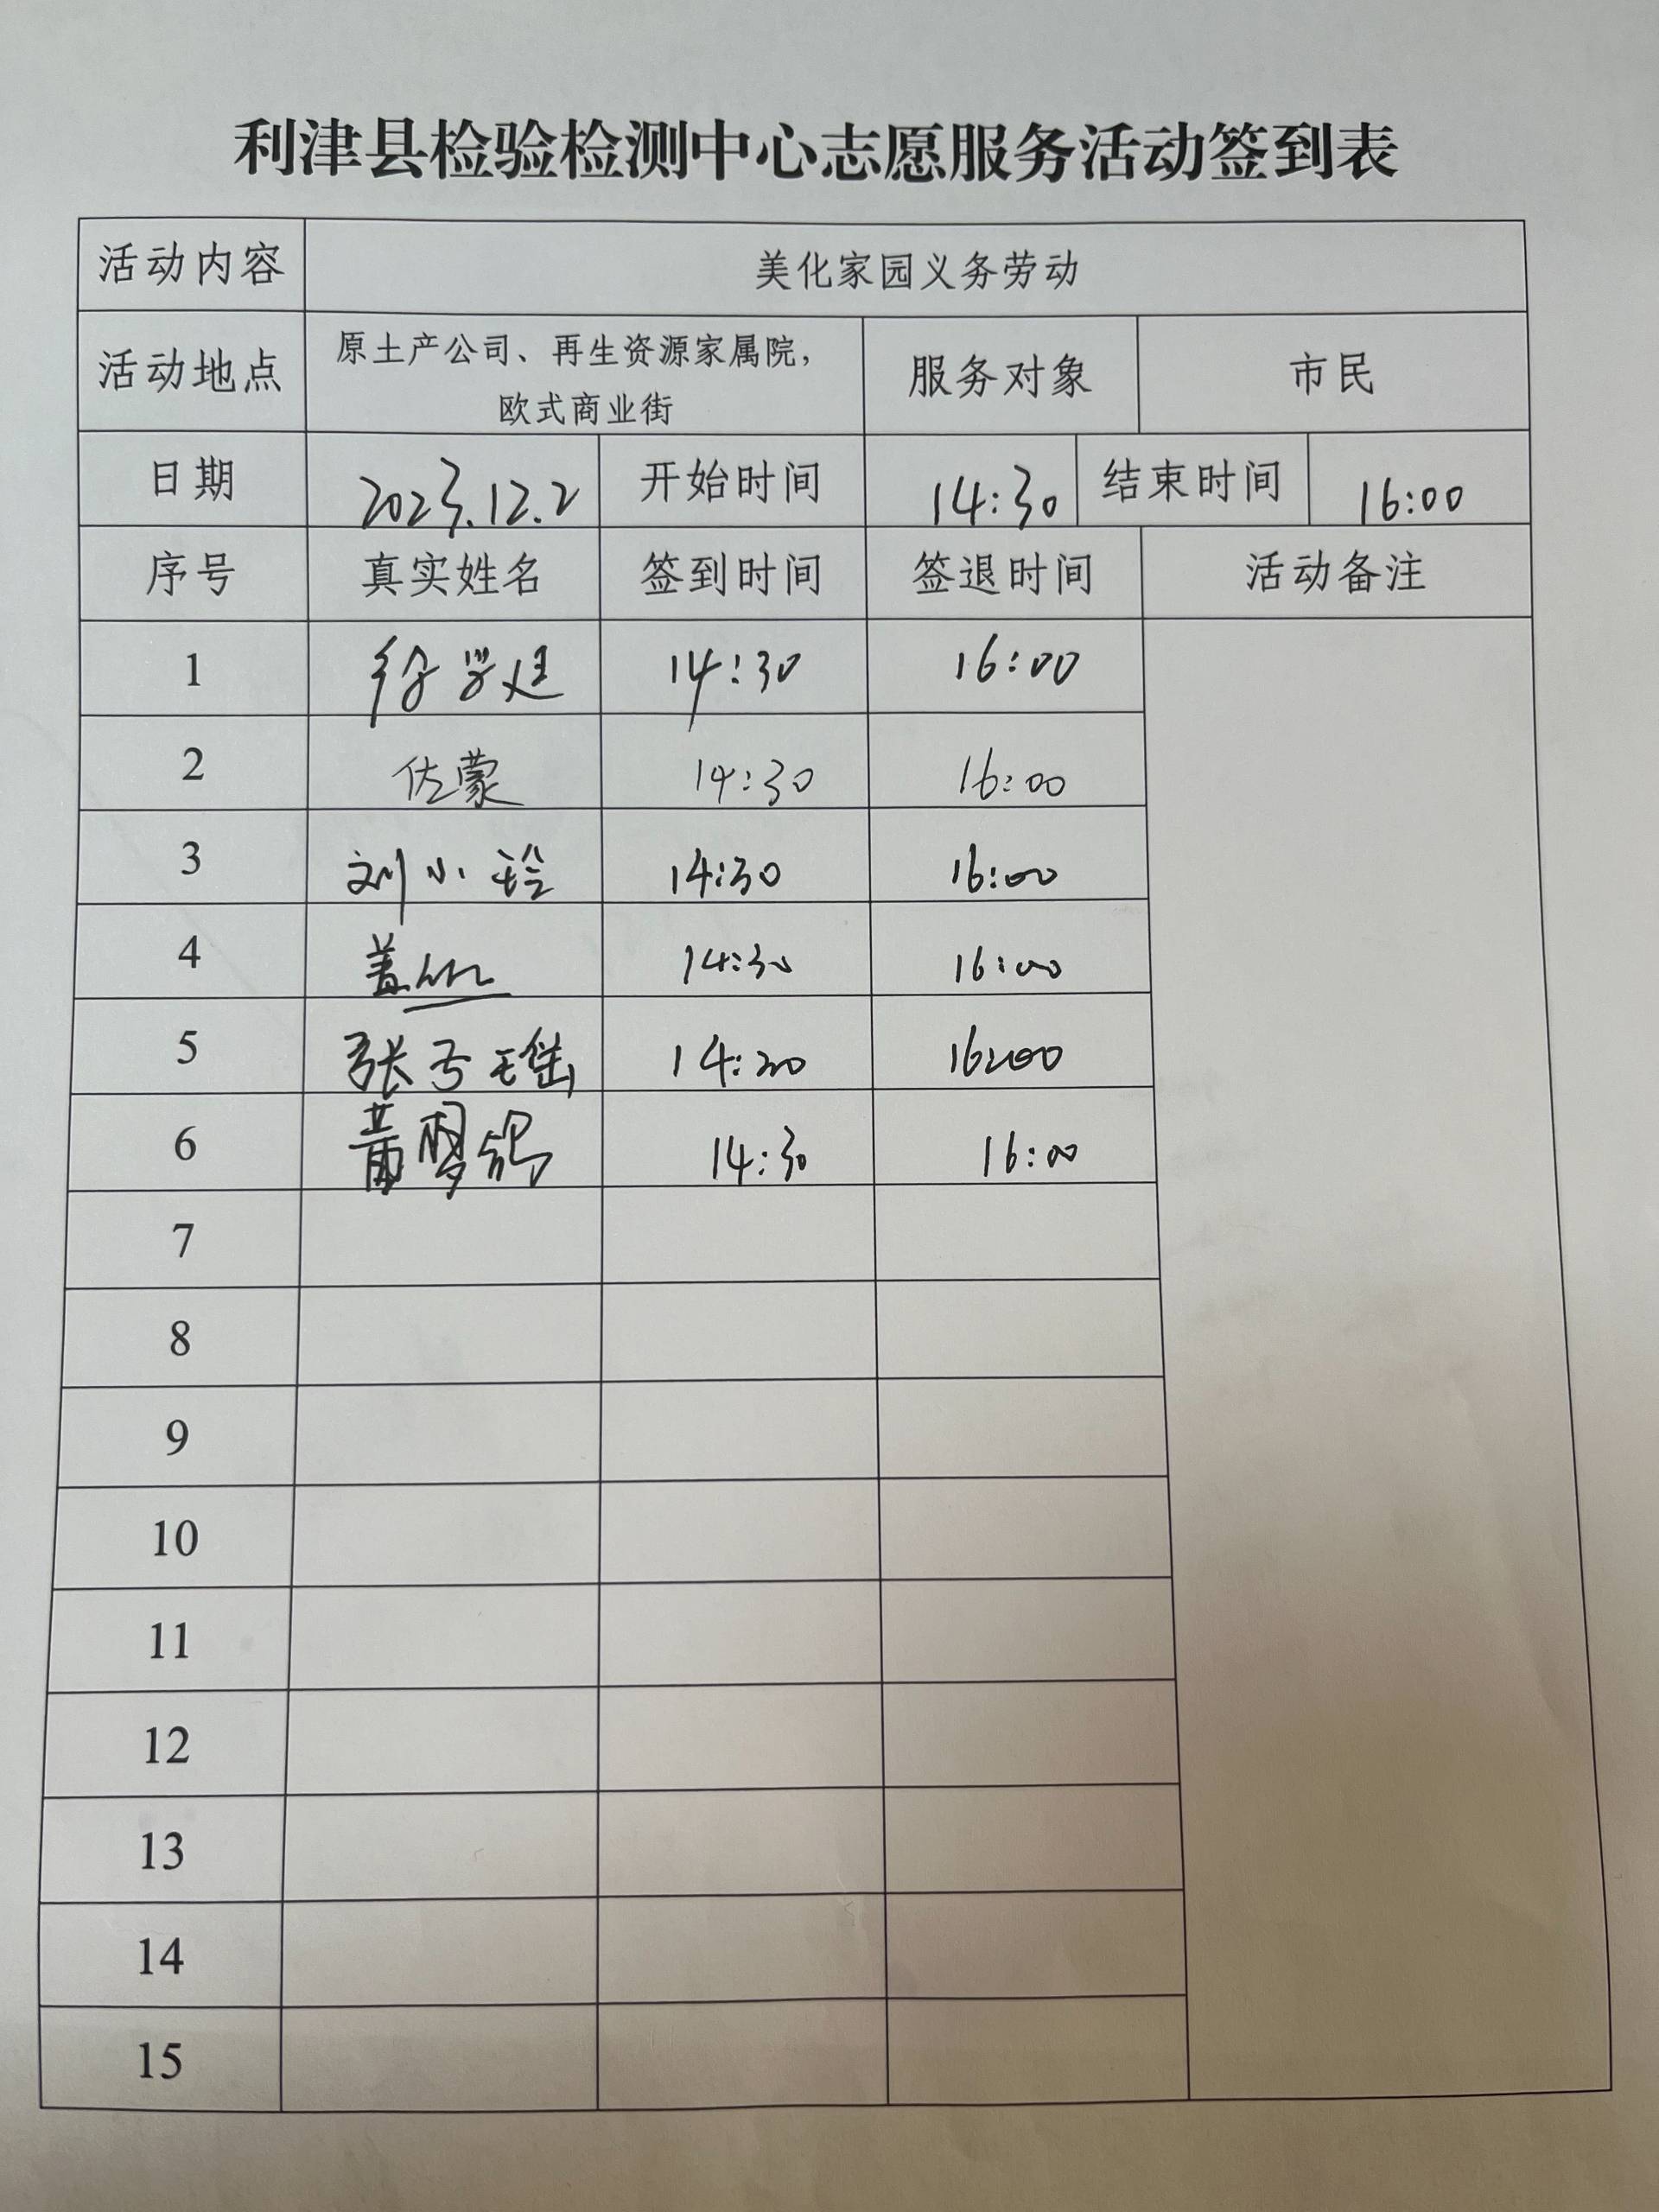 利津县检验检测中心志愿服务活动签到表
活动内容 美化家园义务劳动
活动地点 原土产公司、再生资源家属院，
欧式商业街 服务对象 市民
日期 2023.12.2 开始时间 14:30 结束时间 16:00
序号 真实姓名 签到时间 签退时间 活动备注
1 14:30 16:00
2 佐蒙 14:30 16:00
3 刘小玲 14:30 16:00
4 14:30 16:00
5 张子瑶 14:30 16:00
6 14:30 16:00
7
8
9
10
11
12
13
14
15